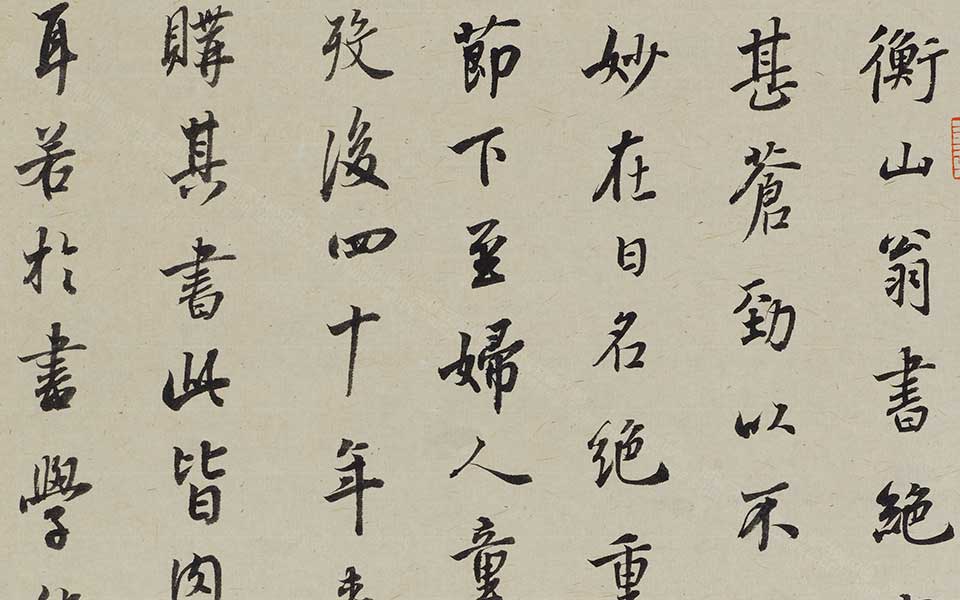 衡山翁書絶
甚蒼勁以不
妙在日名絶重
節下至婦人童
歿後四十年
購其書此皆因
耳若於書學